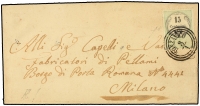 15
Alli Sigri Capelli e
Fabbricatori di Pellami
Borgo di Porta Romana Nº 4441
Milano